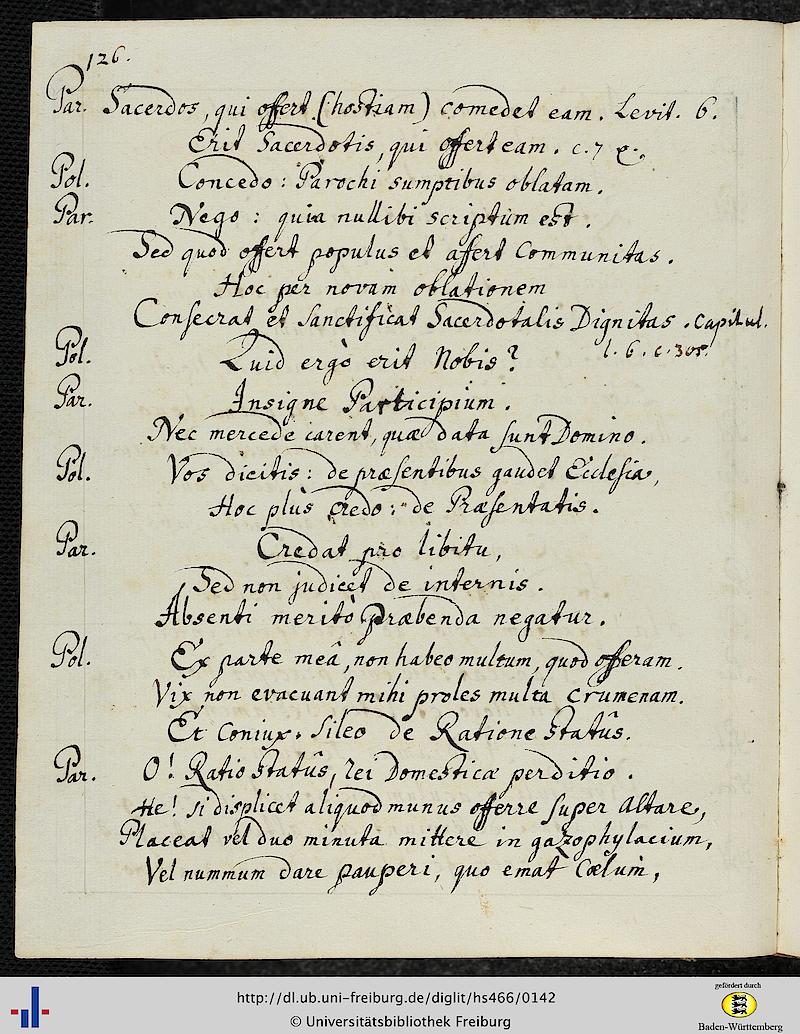 126.
Par. Sacerdos, qui offert (hostiam) comedet eam. Levit. 6.
Erit Sacerdotis, qui offert eam. c. 7
Pol. Concedo: Parochi sumptibus oblatam.
Par. Nego: quia nullibi scriptum est.
Sed quod offert populus et afert Communitas.
Hoc per novam oblationem
Consecrat et sanctificat Sacerdotalis Dignitas. Capitul.
l. 6. c. 305.
Pol. Quid ergò erit Nobis?
Par. Insigne Participium.
Nec mercede carent, quæ data sunt Domino.
Pol. Vos dicitis: de præsentibus gaudet Ecclesia,
Hoc plùs credo: de Præsentatis.
Par. Credat pro libitu,
Sed non judicet de internis.
Absenti meritò præbenda negatur.
Pol. Ex parte meâ, non habeo multum, quod offeram.
Vix non evacuant mihi proles multa crumenam.
Et Coniux. Sileo de Ratione statûs.
Par. O! Ratio statûs, rei Domesticæ perditio.
He! si displicet aliquod munus offerre super Altare,
Placeat vel duo minuta mittere in gazophylacium,
Vel nummum dare pauperi, quo emat Cœlum,
http://dl.ub.uni-freiburg.de/diglit/hs466/0142
© Universitätsbibliothek Freiburg
gefördert durch
Baden-Württemberg